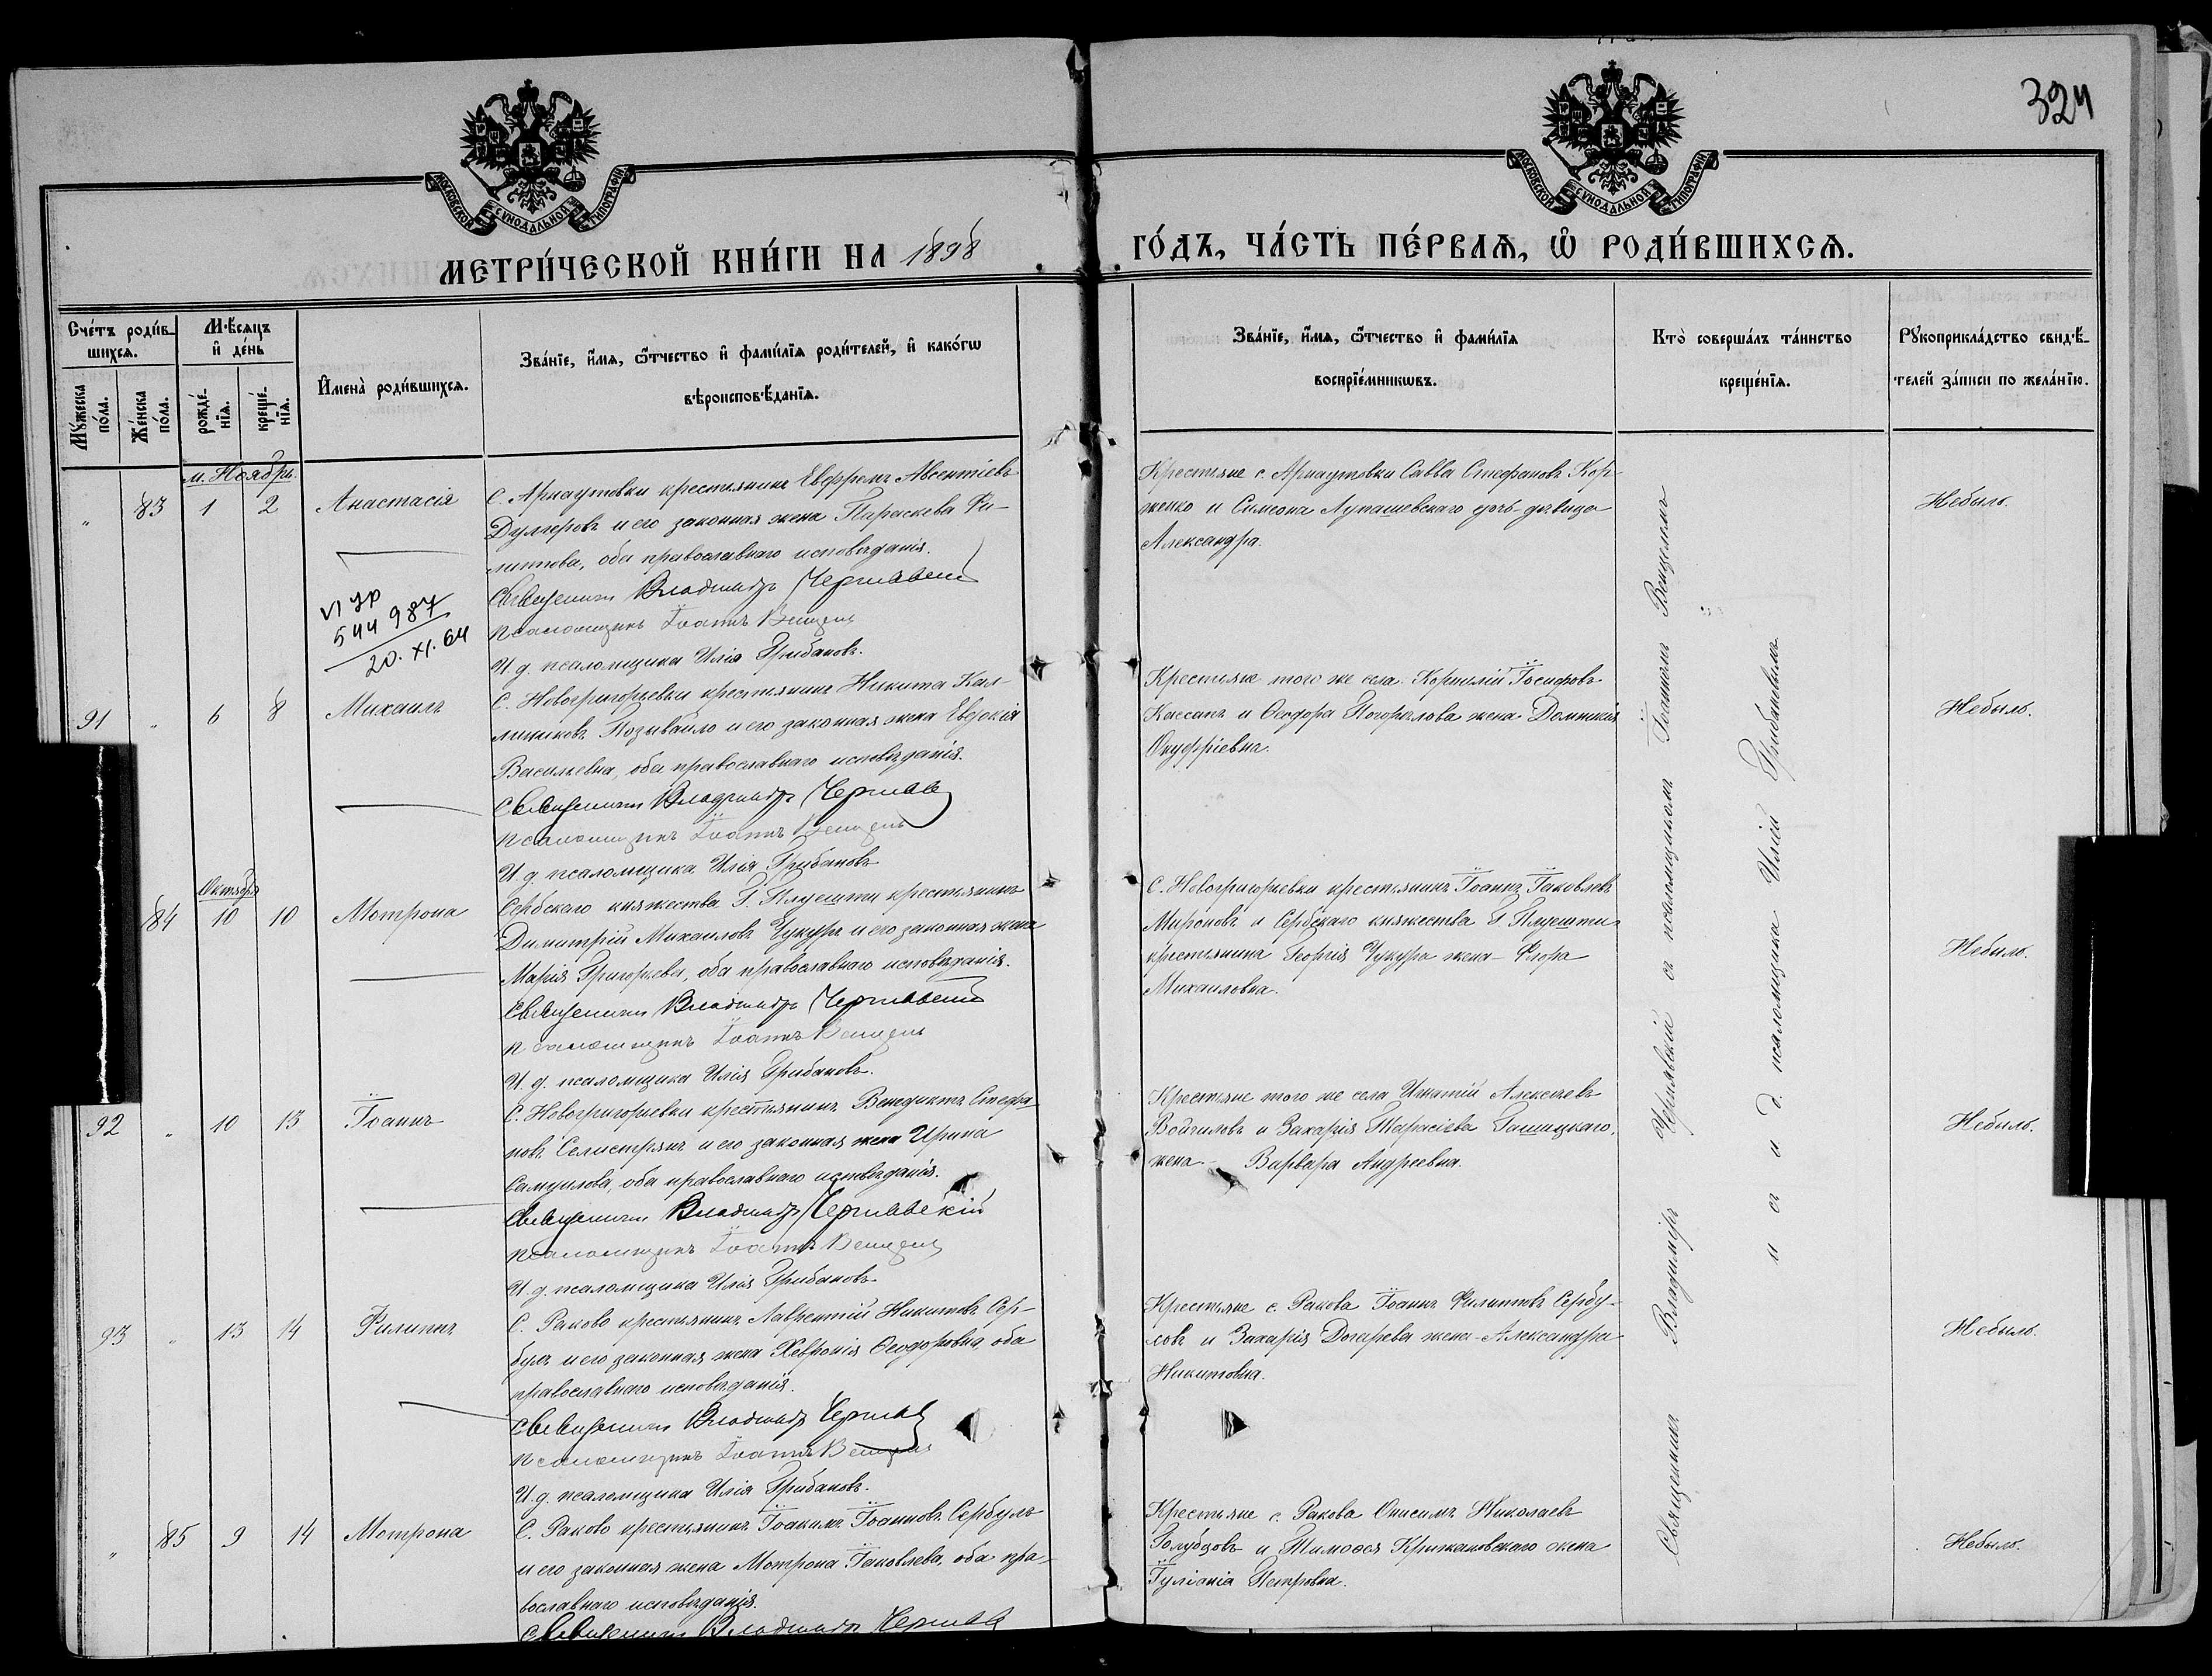 324
МОСКОВСКОЙ СУНОДАЛЬНОЙ ТИПОГРАФІИ
МОСКОВСКОЙ СУНОДАЛЬНОЙ ТИПОГРАФІИ
МЕТРИ́ЧЕСКОЙ КНИ́ГИ НА 1898
ГО́ДЪ, ЧА́СТЬ ПЕ́РВАѦ, Ѡ РОДИ́ВШИХСѦ.
Сче́тъ роди́в-
шихсѧ.
Мꙋ́жеска
по́ла.
Же́нска
по́ла.
Мѣ́сѧцъ
и҆ де́нь
рожде́-
нїѧ.
креще́-
нїѧ.
И҆мена̀ роди́вшихсѧ.
Зва́нїе, и҆́мѧ, ѻ҆́тчество и҆ фами́лїѧ роди́телей, и҆ како́гѡ
вѣроисповѣ́данїѧ.
Зва́нїе, и҆́мѧ, ѻ҆́тчество и҆ фами́лїѧ
воспрїе́мникѡвъ.
Кто̀ соверша́лъ та́инство
креще́нїѧ.
Рꙋкоприкла́дство свидѣ́-
телей за́писи по жела́нїю.
м. Ноябрь.
" 83 1 2 Анастасія
С. Арнаутовки крестьянинъ Евфремъ Авсентіевъ
Дулгеровъ и его законная жена Параскева Фи-
липова, оба православнаго исповѣданія.
Священникъ Владимиръ Чернявскій
псаломщикъ Іоаннъ Венцель
И. д. псаломщика Илія Грибановъ.
VI ЯР
544 987
20. XI. 64
Крестьяне с. Арнаутовки Савва Стефановъ Кор-
женко и Симеона Лупашевскаго дочь-дѣвица
Александра.
Небылъ.
91 " 6 8 Михаилъ
С. Новогригорьевки крестьянинъ Никита Кал-
линиковъ Позывайло и его законная жена Евдокія
Васильевна, оба православнаго исповѣданія.
Священникъ Владимиръ Чернявс
псаломщикъ Іоаннъ Венцель
И. д. псаломщика Илія Грибановъ
Крестьяне того же села: Корнилій Іосифовъ
Кассапъ и Ѳеодора Погорелова жена Домникія
Онуфріевна.
Небылъ.
Октября
84 10 10 Мотрона
Сербскаго княжества Г. Плуешти крестьянинъ
Димитрій Михаиловъ Чукуръ и его законная жена
Марія Григорьева, оба православнаго исповѣданія.
Священникъ Владимиръ Чернявскій
псаломщикъ Іоаннъ Венцель
И. д. псаломщика Илія Грибановъ.
С. Новогригорьевки крестьянинъ Іоаннъ Іаковлевъ
Мироновъ и Сербскаго княжества Г. Плуешти
крестьянина Георгія Чукура жена - Флора
Михаиловна.
Небылъ.
92 " 10 13 Іоаннъ
С. Новогригорьевки крестьянинъ Венедиктъ Стефа-
новъ Селистрянъ и его законная жена Ирина
Самуилова, оба православнаго исповѣданія.
Священникъ Владимиръ Чернявскій
псаломщикъ Іоаннъ Венцель
И. д. псаломщика Илія Грибановъ
Крестьяне того же села Игнатій Алексѣевъ
Войчиловъ и Захарія Тарасіева Гашицкаго,
жена - Варвара Андреевна.
Небылъ.
93 " 13 14 Филиппъ
С. Раково крестьянинъ Лаврентій Никитовъ Сер-
булъ и его законная жена Хевронія Ѳеодоровна, оба
православнаго исповѣданія.
Священникъ Владимиръ Черняв
псаломщикъ Іоаннъ Венцель
И. д. псаломщика Илія Грибановъ.
Крестьяне с. Ракова Іоаннъ Филиповъ Сербу-
ловъ и Захарія Догарева жена - Александра
Никитовна.
Небылъ.
" 85 9 14 Мотрона
С. Раково крестьянинъ Іоакимъ Іоанновъ Сербулъ
и его законная жена Мотрона Іаковлева, оба пра-
вославнаго исповѣданія.
Священникъ Владимиръ Черняв
Крестьяне с. Ракова Онисимъ Николаевъ
Голубцовъ и Тимоѳея Крижановскаго жена
Іуліанія Петровна.
Небылъ.
Священникъ Владимиръ Чернявскій съ псаломщикомъ Іоанномъ Венцелемъ
и съ и. д. псаломщика Иліей Грибановымъ